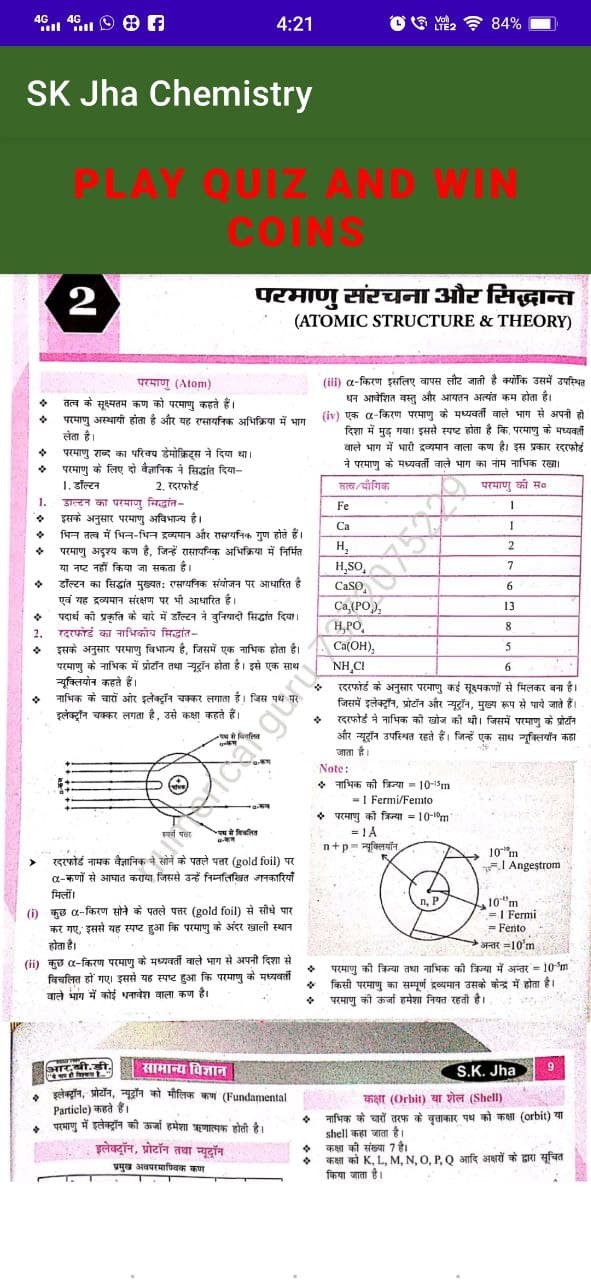 4G 4G 4:21 Voll LTE2 84%
SK Jha Chemistry
PLAY QUIZ AND WIN
COINS
2
परमाणु संरचना और सिद्धान्त
(ATOMIC STRUCTURE & THEORY)
परमाणु (Atom)
❖ तत्व के सूक्ष्मतम कण को परमाणु कहते हैं।
❖ परमाणु अस्थायी होता है और यह रसायनिक अभिक्रिया में भाग
लेता है।
❖ परमाणु शब्द का परिचय डेमोक्रिट्स ने दिया था।
❖ परमाणु के लिए दो वैज्ञानिक ने सिद्धांत दिया–
1. डॉल्टन 2. रदरफोर्ड
1. डाल्टन का परमाणु सिद्धांत–
❖ इसके अनुसार परमाणु अविभाज्य है।
❖ भिन्न तत्व में भिन्न-भिन्न द्रव्यमान और रासायनिक गुण होते हैं।
❖ परमाणु अदृश्य कण है, जिन्हें रासायनिक अभिक्रिया में निर्मित
या नष्ट नहीं किया जा सकता है।
❖ डॉल्टन का सिद्धांत मुख्यतः रसायनिक संयोजन पर आधारित है
एवं यह द्रव्यमान संरक्षण पर भी आधारित है।
❖ पदार्थ की प्रकृति के बारे में डॉल्टन ने बुनियादी सिद्धांत दिया।
2. रदरफोर्ड का नाभिकीय सिद्धांत–
❖ इसके अनुसार परमाणु विभाज्य है, जिसमें एक नाभिक होता है।
परमाणु के नाभिक में प्रोटॉन तथा न्यूट्रॉन होता है। इसे एक साथ
न्यूक्लियोन कहते हैं।
❖ नाभिक के चारों ओर इलेक्ट्रॉन चक्कर लगाता है। जिस पथ पर
इलेक्ट्रॉन चक्कर लगता है, उसे कक्षा कहते हैं।
पथ से विचलित
α-कण
α-कण
नाभिक
α-कण
स्वर्ण पत्तर
पथ से विचलित
α-कण
➤ रदरफोर्ड नामक वैज्ञानिक ने सोने के पतले पत्तर (gold foil) पर
α-कणों से आघात कराया जिससे उन्हें निम्नलिखित जानकारियाँ
मिलीं।
(i) कुछ α-किरण सोने के पतले पत्तर (gold foil) से सीधे पार
कर गए, इससे यह स्पष्ट हुआ कि परमाणु के अंदर खाली स्थान
होता है।
(ii) कुछ α-किरण परमाणु के मध्यवर्ती वाले भाग से अपनी दिशा से
विचलित हो गए। इससे यह स्पष्ट हुआ कि परमाणु के मध्यवर्ती
वाले भाग में कोई धनावेश वाला कण है।
(iii) α-किरण इसलिए वापस लौट जाती है क्योंकि उसमें उपस्थित
धन आवेशित वस्तु और आयतन अत्यंत कम होता है।
(iv) एक α-किरण परमाणु के मध्यवर्ती वाले भाग से अपनी ही
दिशा में मुड़ गया। इससे स्पष्ट होता है कि परमाणु के मध्यवर्ती
वाले भाग में भारी द्रव्यमान वाला कण है। इस प्रकार रदरफोर्ड
ने परमाणु के मध्यवर्ती वाले भाग का नाम नाभिक रखा।
तत्व/यौगिक परमाणु की सं०
Fe 1
Ca 1
H₂ 2
H₂SO₄ 7
CaSO₄ 6
Ca₃(PO₄)₂ 13
H₃PO₄ 8
Ca(OH)₂ 5
NH₄Cl 6
❖ रदरफोर्ड के अनुसार परमाणु कई सूक्ष्मकणों से मिलकर बना है।
जिसमें इलेक्ट्रॉन, प्रोटॉन और न्यूट्रॉन, मुख्य रूप से पाये जाते हैं।
❖ रदरफोर्ड ने नाभिक की खोज की थी। जिसमें परमाणु के प्रोटॉन
और न्यूट्रॉन उपस्थित रहते हैं। जिन्हें एक साथ न्यूक्लियॉन कहा
जाता है।
Note:
❖ नाभिक की त्रिज्या = 10⁻¹⁵m
= 1 Fermi/Femto
❖ परमाणु की त्रिज्या = 10⁻¹⁰m
= 1 Å
n + p = न्यूक्लियॉन
n, P
10⁻¹⁰m
= 1 Angestrom
10⁻¹⁵m
= 1 Fermi
= Fento
अन्तर =10⁵m
❖ परमाणु की त्रिज्या तथा नाभिक की त्रिज्या में अन्तर = 10⁻⁵m
❖ किसी परमाणु का सम्पूर्ण द्रव्यमान उसके केन्द्र में होता है।
❖ परमाणु की ऊर्जा हमेशा नियत रहती है।
आर.बी.डी. सामान्य विज्ञान S.K. Jha 9
❖ इलेक्ट्रॉन, प्रोटॉन, न्यूट्रॉन को मौलिक कण (Fundamental
Particle) कहते हैं।
❖ परमाणु में इलेक्ट्रॉन की ऊर्जा हमेशा ऋणात्मक होती है।
इलेक्ट्रॉन, प्रोटॉन तथा न्यूट्रॉन
प्रमुख अवपरमाण्विक कण
कक्षा (Orbit) या शेल (Shell)
❖ नाभिक के चारों तरफ के वृत्ताकार पथ को कक्षा (orbit) या
shell कहा जाता है।
❖ कक्षा की संख्या 7 है।
❖ कक्षा को K, L, M, N, O, P, Q आदि अक्षरों के द्वारा सूचित
किया जाता है।